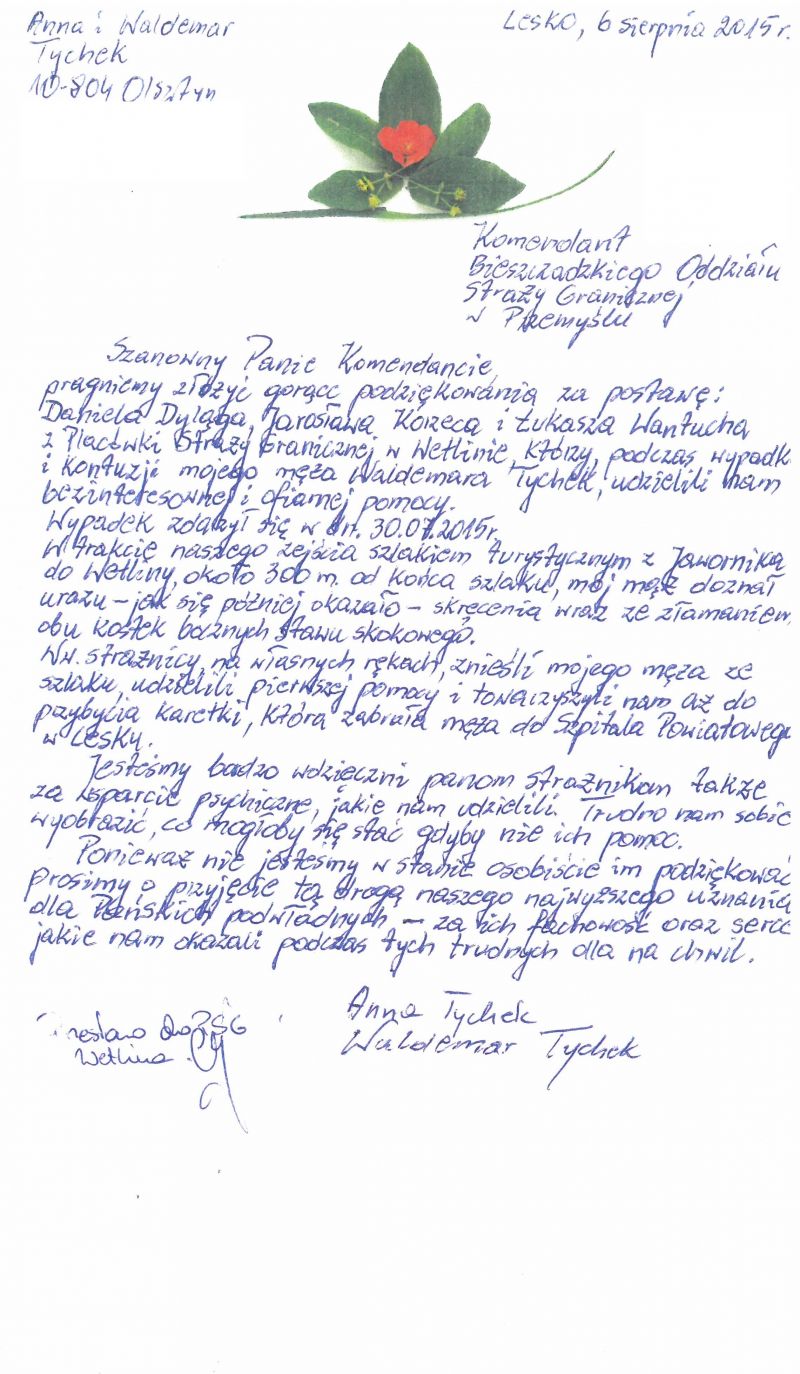 Anna i Waldemar
Tychek
10-804 Olsztyn
Lesko, 6 sierpnia 2015 r.
Komendant
Bieszczadzkiego Oddziału
Straży Granicznej
w Przemyślu
Szanowny Panie Komendancie,
pragniemy złożyć gorące podziękowania za postawę:
Daniela Dyląga, Jarosława Korzeca i Łukasza Wantucha
z Placówki Straży Granicznej w Wetlinie, którzy, podczas wypadk
i kontuzji mojego męża Waldemara Tychek, udzielili nam
bezinteresownej i ofiarnej pomocy.
Wypadek zdarzył się w dn. 30.07.2015r.
W trakcie naszego zejścia szlakiem turystycznym z Jawornika
do Wetliny, około 300 m. od końca szlaku, mój mąż doznał
urazu – jak się później okazało – skręcenia wraz ze złamaniem
obu kostek bocznych stawu skokowego.
Ww. strażnicy, na własnych rękach, znieśli mojego męża ze
szlaku, udzielili pierwszej pomocy i towarzyszyli nam aż do
przybycia karetki, która zabrała męża do Szpitala Powiatowego
w Lesku.
Jesteśmy badzo wdzięczni panom strażnikom także
za wsparcie psychiczne, jakie nam udzielili. Trudno nam sobie
wyobrazić, co mogłoby się stać gdyby nie ich pomoc.
Ponieważ nie jesteśmy w stanie osobiście im podziękować
prosimy o przyjęcie tą drogą naszego najwyższego uznania
dla Pańskich podwładnych – za ich fachowość oraz serce
jakie nam okazali podczas tych trudnych dla na chwil.
Anna Tychek
Waldemar Tychek
PSG
Wetlina